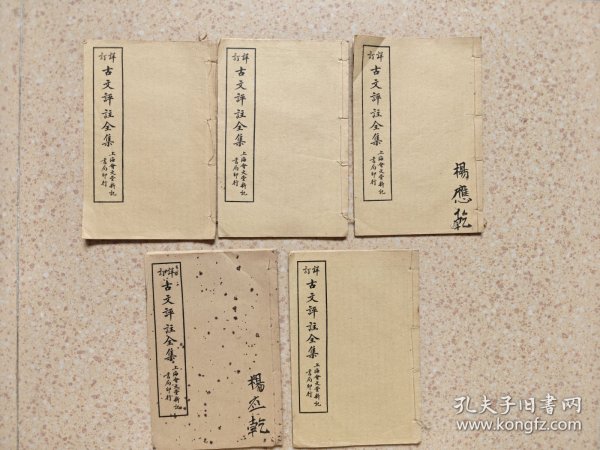 詳訂
古文評註全集
上海會文堂新記
書局印行
詳訂
古文評註全集
上海會文堂新記
書局印行
詳訂
古文評註全集
上海會文堂新記
書局印行
楊應乾
詳訂
古文評註全集
上海會文堂新記
書局印行
楊应乾
詳訂
古文評註全集
上海會文堂新記
書局印行
孔夫子旧书网
www.kongfz.com